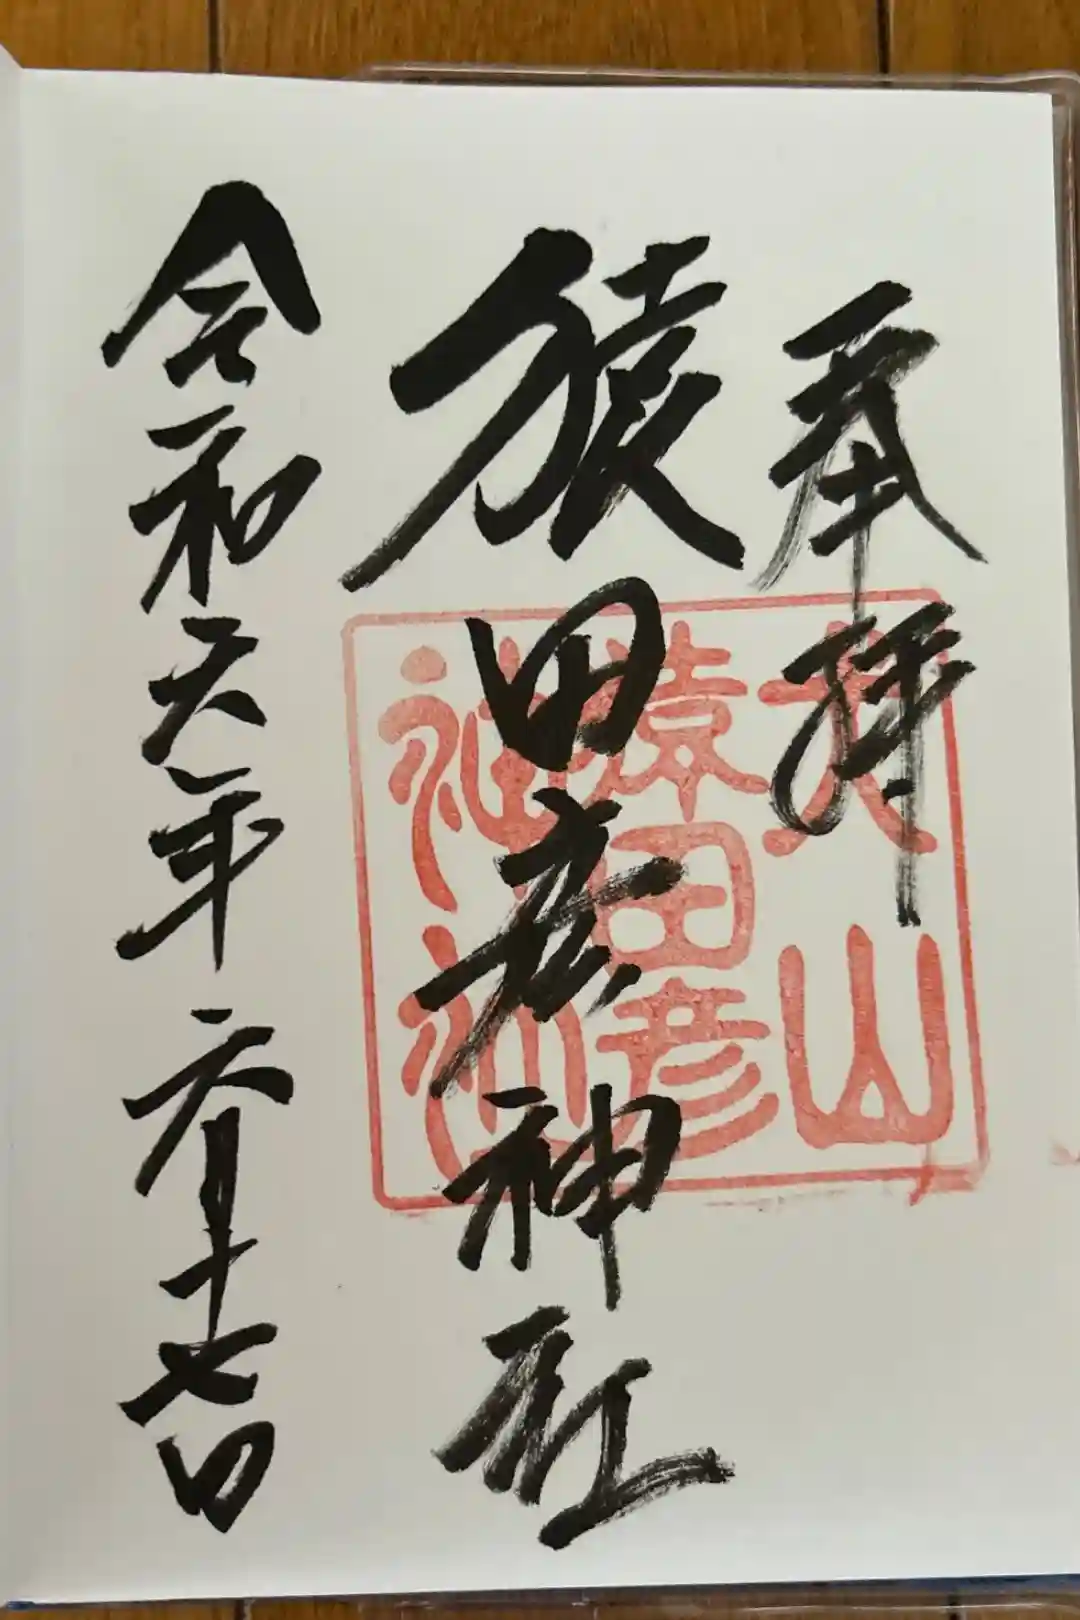 奉拝
猿田彦神社
令和六年六月十七日
犬山
猿田彦
神社